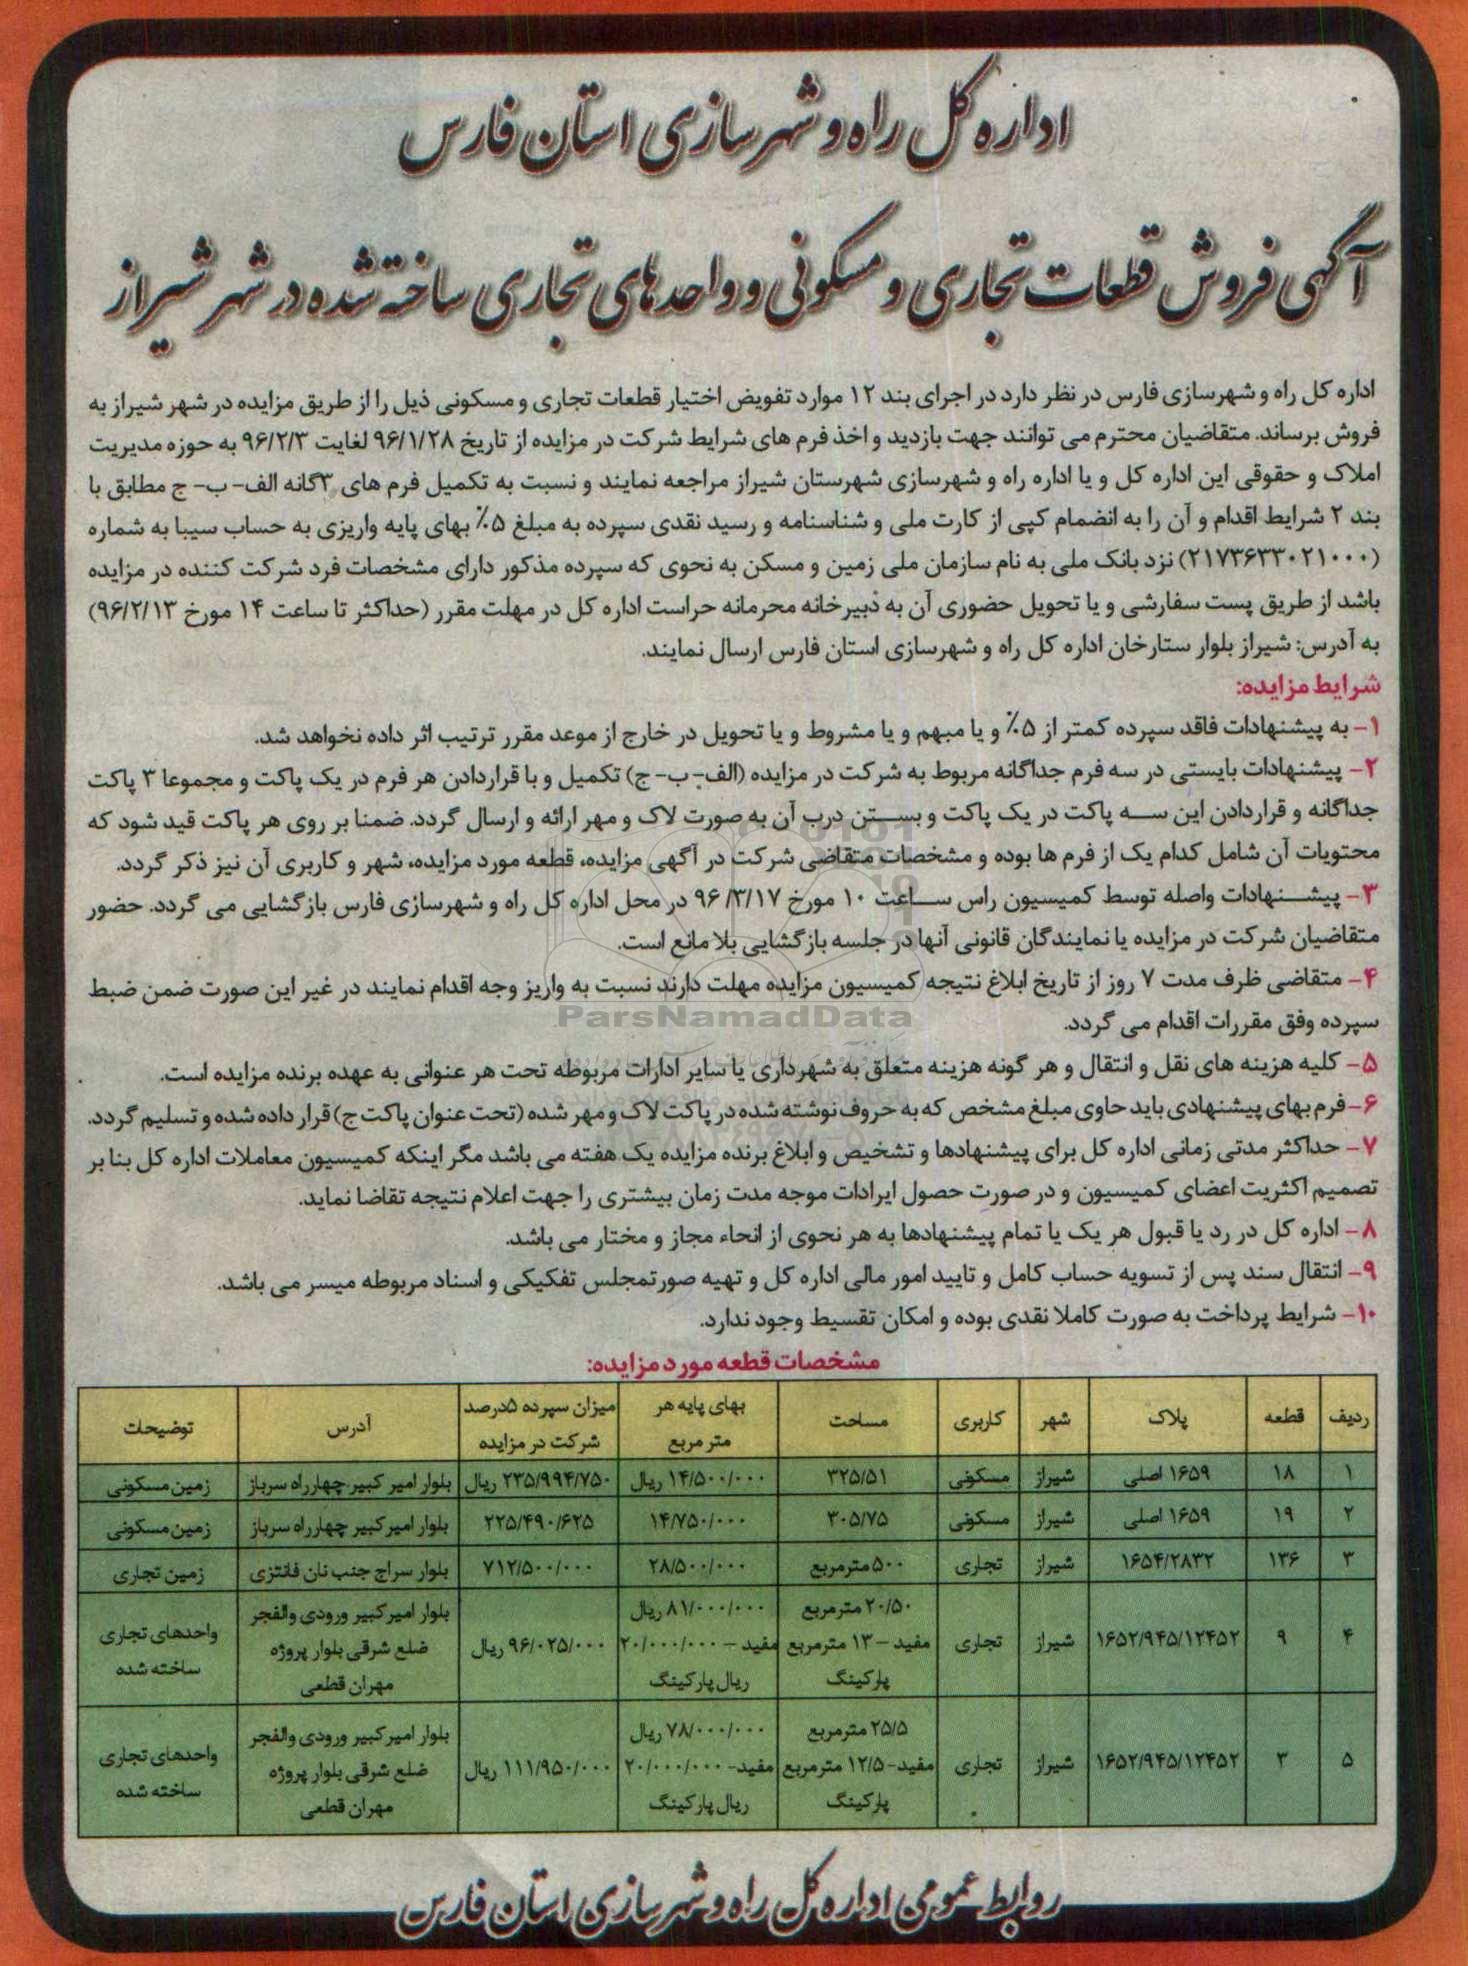 اداره کل راه و شهرسازی استان فارس
آگهی فروش قطعات تجاری و مسکونی و واحدهای تجاری ساخته شده در شهر شیراز
اداره کل راه و شهرسازی فارس در نظر دارد در اجرای بند ۱۲ موارد تفویض اختیار قطعات تجاری و مسکونی ذیل را از طریق مزایده در شهر شیراز به
فروش برساند. متقاضیان محترم می توانند جهت بازدید و اخذ فرم های شرایط شرکت در مزایده از تاریخ ۹۶/۱/۲۸ لغایت ۹۶/۲/۳ به حوزه مدیریت
املاک و حقوقی این اداره کل و یا اداره راه و شهرسازی شهرستان شیراز مراجعه نمایند و نسبت به تکمیل فرم های ۳گانه الف- ب- ج مطابق با
بند ۲ شرایط اقدام و آن را به انضمام کپی از کارت ملی و شناسنامه و رسید نقدی سپرده به مبلغ ۵٪ بهای پایه واریزی به حساب سیبا به شماره
(۲۱۷۳۶۳۳۰۲۱۰۰۰) نزد بانک ملی به نام سازمان ملی زمین و مسکن به نحوی که سپرده مذکور دارای مشخصات فرد شرکت کننده در مزایده
باشد از طریق پست سفارشی و یا تحویل حضوری آن به دبیرخانه محرمانه حراست اداره کل در مهلت مقرر (حداکثر تا ساعت ۱۴ مورخ ۹۶/۲/۱۳)
به آدرس: شیراز بلوار ستارخان اداره کل راه و شهرسازی استان فارس ارسال نمایند.
شرایط مزایده:
۱- به پیشنهادات فاقد سپرده کمتر از ۵٪ و یا مبهم و یا مشروط و یا تحویل در خارج از موعد مقرر ترتیب اثر داده نخواهد شد.
۲- پیشنهادات بایستی در سه فرم جداگانه مربوط به شرکت در مزایده (الف- ب- ج) تکمیل و با قراردادن هر فرم در یک پاکت و مجموعا ۳ پاکت
جداگانه و قراردادن این سه پاکت در یک پاکت و بستن درب آن به صورت لاک و مهر ارائه و ارسال گردد. ضمنا بر روی هر پاکت قید شود که
محتویات آن شامل کدام یک از فرم ها بوده و مشخصات متقاضی شرکت در آگهی مزایده، قطعه مورد مزایده، شهر و کاربری آن نیز ذکر گردد.
۳- پیشنهادات واصله توسط کمیسیون راس ساعت ۱۰ مورخ ۹۶/۳/۱۷ در محل اداره کل راه و شهرسازی فارس بازگشایی می گردد. حضور
متقاضیان شرکت در مزایده یا نمایندگان قانونی آنها در جلسه بازگشایی بلا مانع است.
۴- متقاضی ظرف مدت ۷ روز از تاریخ ابلاغ نتیجه کمیسیون مزایده مهلت دارند نسبت به واریز وجه اقدام نمایند در غیر این صورت ضمن ضبط
ParsNamadData
سپرده وفق مقررات اقدام می گردد.
۵- کلیه هزینه های نقل و انتقال و هر گونه هزینه متعلق به شهرداری یا سایر ادارات مربوطه تحت هر عنوانی به عهده برنده مزایده است.
۶- فرم بهای پیشنهادی باید حاوی مبلغ مشخص که به حروف نوشته شده در پاکت لاک و مهر شده (تحت عنوان پاکت ج) قرار داده شده و تسلیم گردد.
۷- حداکثر مدتی زمانی اداره کل برای پیشنهادها و تشخیص و ابلاغ برنده مزایده یک هفته می باشد مگر اینکه کمیسیون معاملات اداره کل بنا بر
تصمیم اکثریت اعضای کمیسیون و در صورت حصول ایرادات موجه مدت زمان بیشتری را جهت اعلام نتیجه تقاضا نماید.
۸- اداره کل در رد یا قبول هر یک یا تمام پیشنهادها به هر نحوی از انحاء مجاز و مختار می باشد.
۹- انتقال سند پس از تسویه حساب کامل و تایید امور مالی اداره کل و تهیه صورتمجلس تفکیکی و اسناد مربوطه میسر می باشد.
۱۰- شرایط پرداخت به صورت کاملا نقدی بوده و امکان تقسیط وجود ندارد.
مشخصات قطعه مورد مزایده:
ردیف قطعه پلاک شهر کاربری مساحت بهای پایه هر متر مربع میزان سپرده ۵درصد شرکت در مزایده آدرس توضیحات
۱ ۱۸ ۱۶۵۹ اصلی شیراز مسکونی ۳۲۵/۵۱ ۱۴/۵۰۰/۰۰۰ ریال ۲۳۵/۹۹۴/۷۵۰ ریال بلوار امیر کبیر چهارراه سرباز زمین مسکونی
۲ ۱۹ ۱۶۵۹ اصلی شیراز مسکونی ۳۰۵/۷۵ ۱۴/۷۵۰/۰۰۰ ۲۲۵/۴۹۰/۶۲۵ بلوار امیر کبیر چهارراه سرباز زمین مسکونی
۳ ۱۳۶ ۱۶۵۴/۲۸۳۲ شیراز تجاری ۵۰۰ مترمربع ۲۸/۵۰۰/۰۰۰ ۷۱۲/۵۰۰/۰۰۰ بلوار سراج جنب نان فانتزی زمین تجاری
۴ ۹ ۱۶۵۲/۹۴۵/۱۲۴۵۲ شیراز تجاری ۲۰/۵۰ مترمربع مفید - ۱۳ مترمربع پارکینگ ۸۱/۰۰۰/۰۰۰ ریال مفید - ۲۰/۰۰۰/۰۰۰ ریال پارکینگ ۹۶/۰۲۵/۰۰۰ ریال بلوار امیر کبیر ورودی والفجر ضلع شرقی بلوار پروژه مهران قطعی واحدهای تجاری ساخته شده
۵ ۳ ۱۶۵۲/۹۴۵/۱۲۴۵۲ شیراز تجاری ۲۵/۵ مترمربع مفید- ۱۲/۵ مترمربع پارکینگ ۷۸/۰۰۰/۰۰۰ ریال مفید- ۲۰/۰۰۰/۰۰۰ ریال پارکینگ ۱۱۱/۹۵۰/۰۰۰ ریال بلوار امیر کبیر ورودی والفجر ضلع شرقی بلوار پروژه مهران قطعی واحدهای تجاری ساخته شده
روابط عمومی اداره کل راه و شهرسازی استان فارس